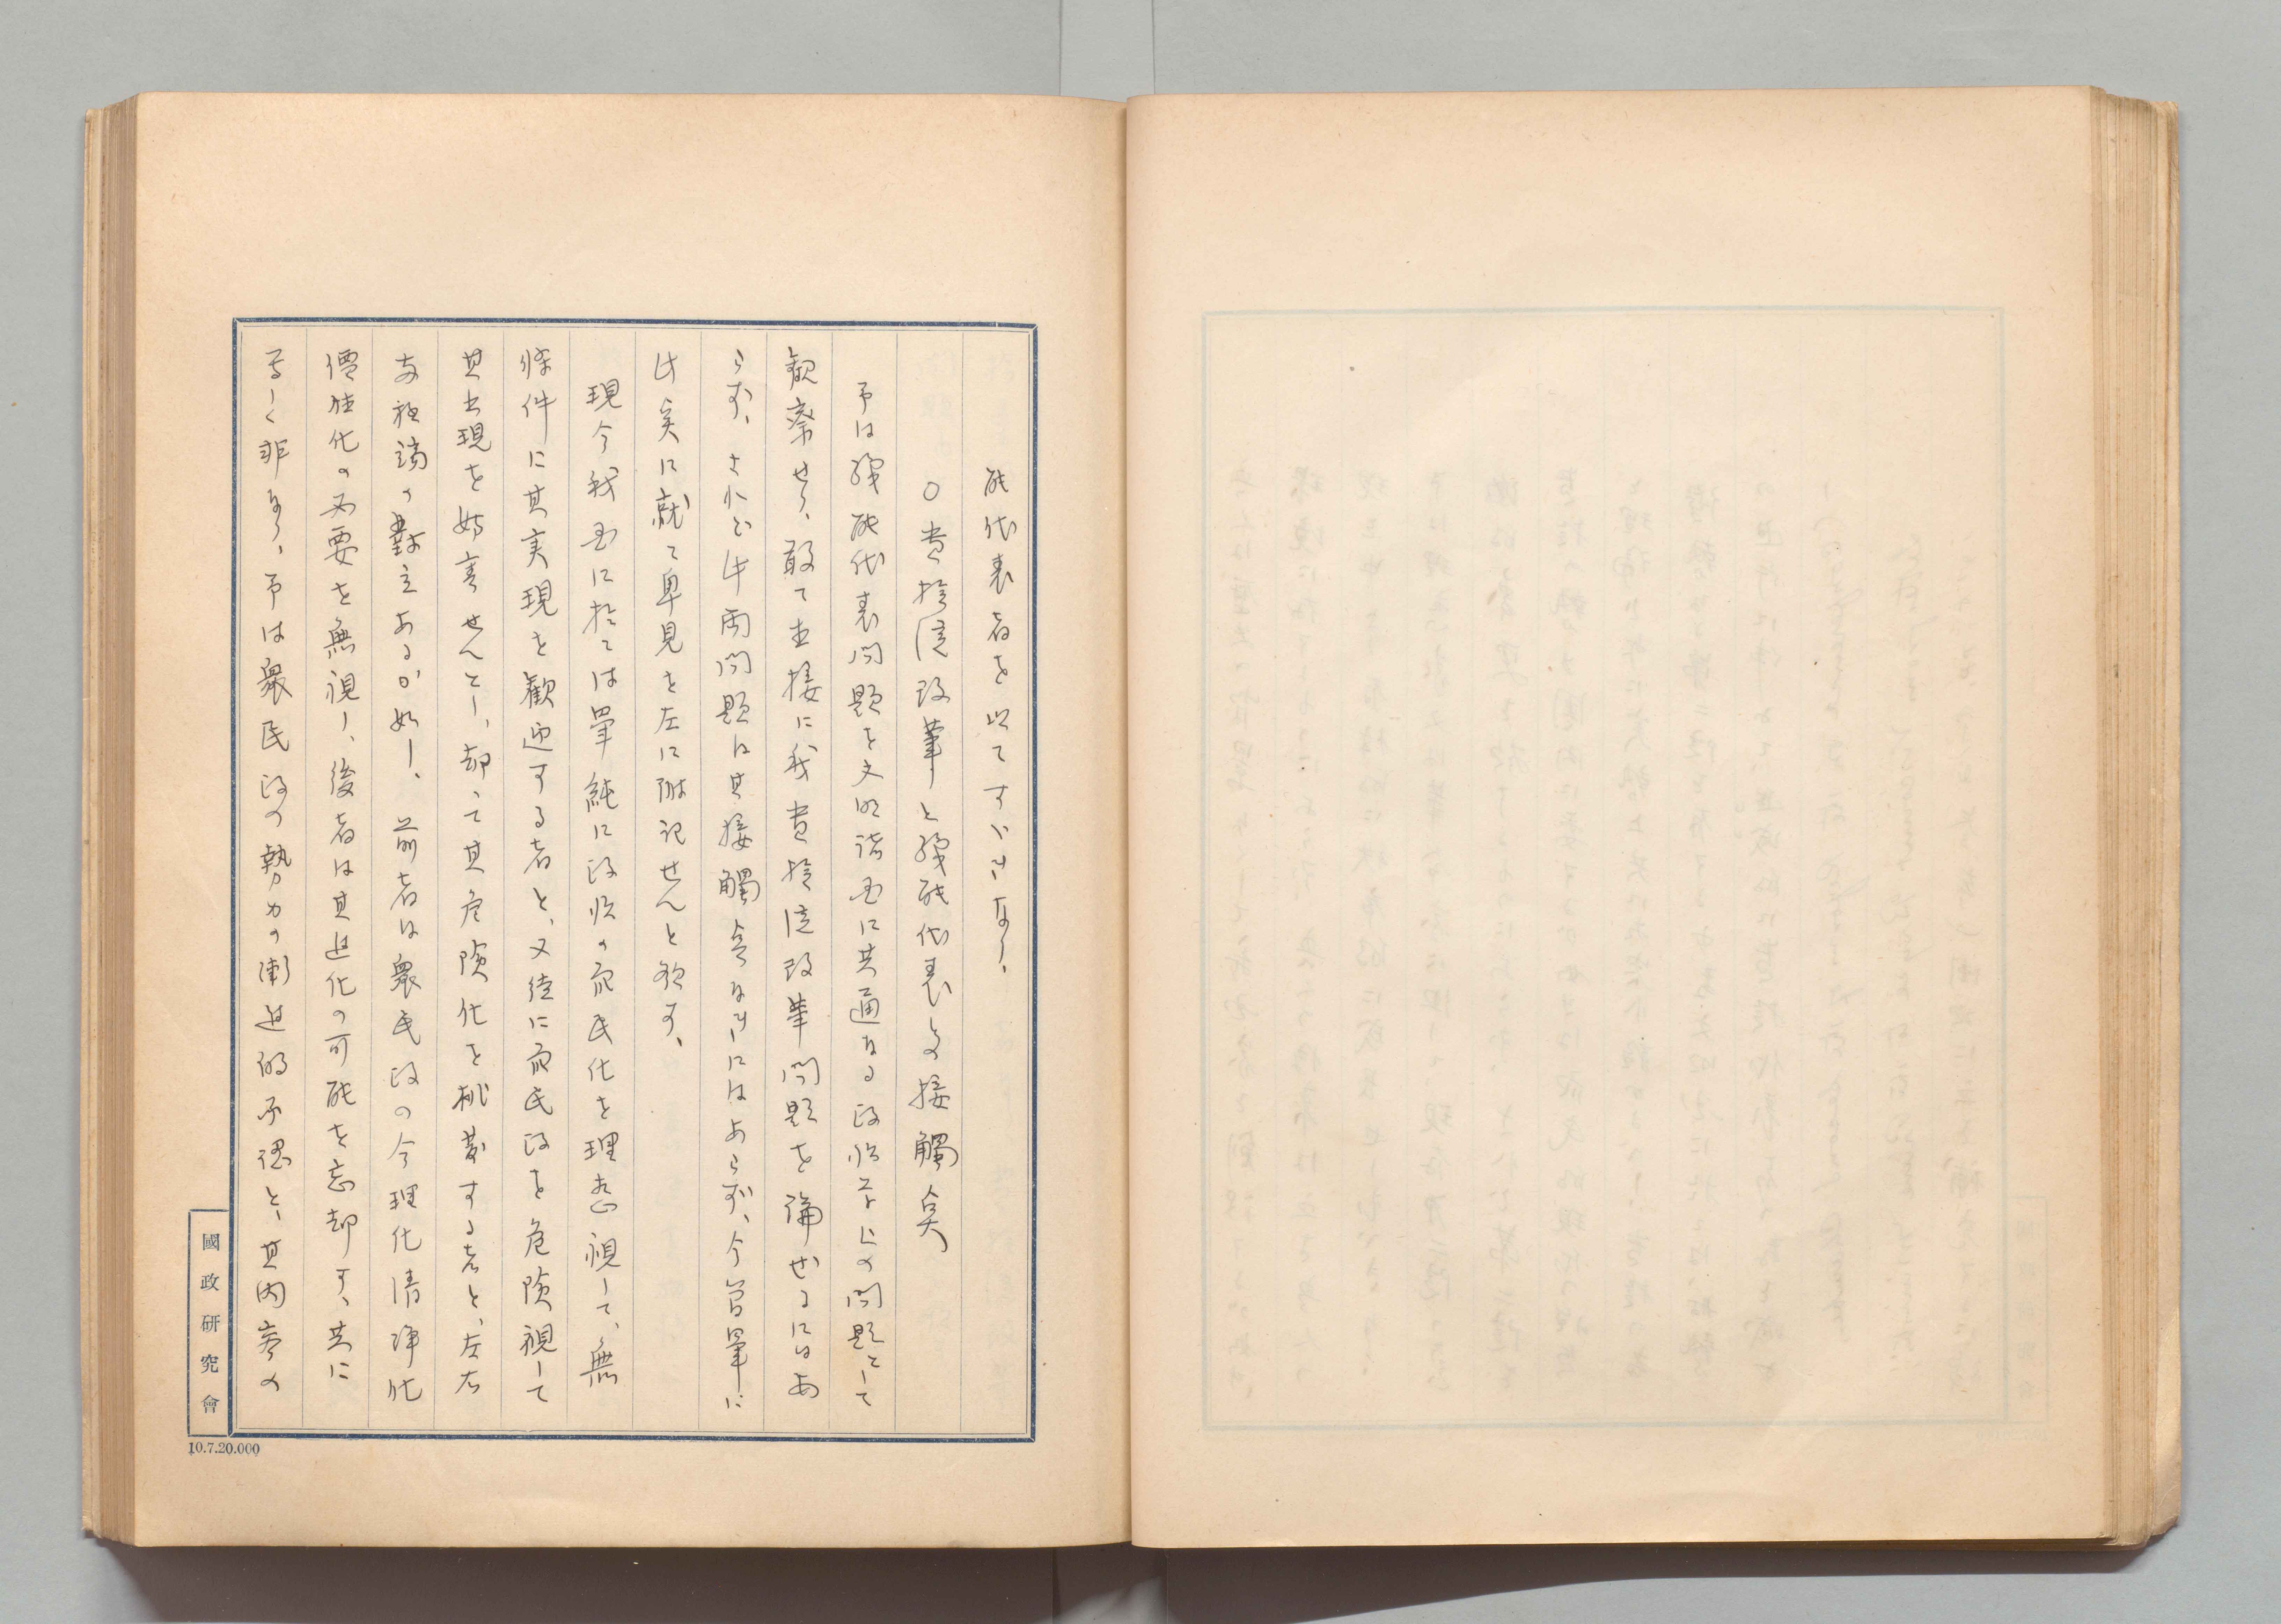 能代表者を以てすべきなし、
○貴族院改革と職能代表との接觸点
予は職能代表問題を文明諸国に共通なる政治学上の問題として
観察せり、敢て直接に我貴族院改革問題を論ぜるにはあ
らず、されど此両問題は其接觸点なきにはあらず、今簡単に
此点に就て卑見を左に附記せんと欲す、
現今我国に於ては単純に政治の衆民化を理想視して、無
條件に其実現を歓迎する者と、又徒に衆民政を危険視して
其出現を妨害せんとし、却って其危険化を挑発する者と、左右
両極端の對立あるが如し、前者は衆民政の合理化清浄化
價値化の必要を無視し、後者は其進化の可能を忘却す、共に
等しく非なり、予は衆民政の勢力の漸進的承認と、其内容の
國政研究會
10.7.20.000